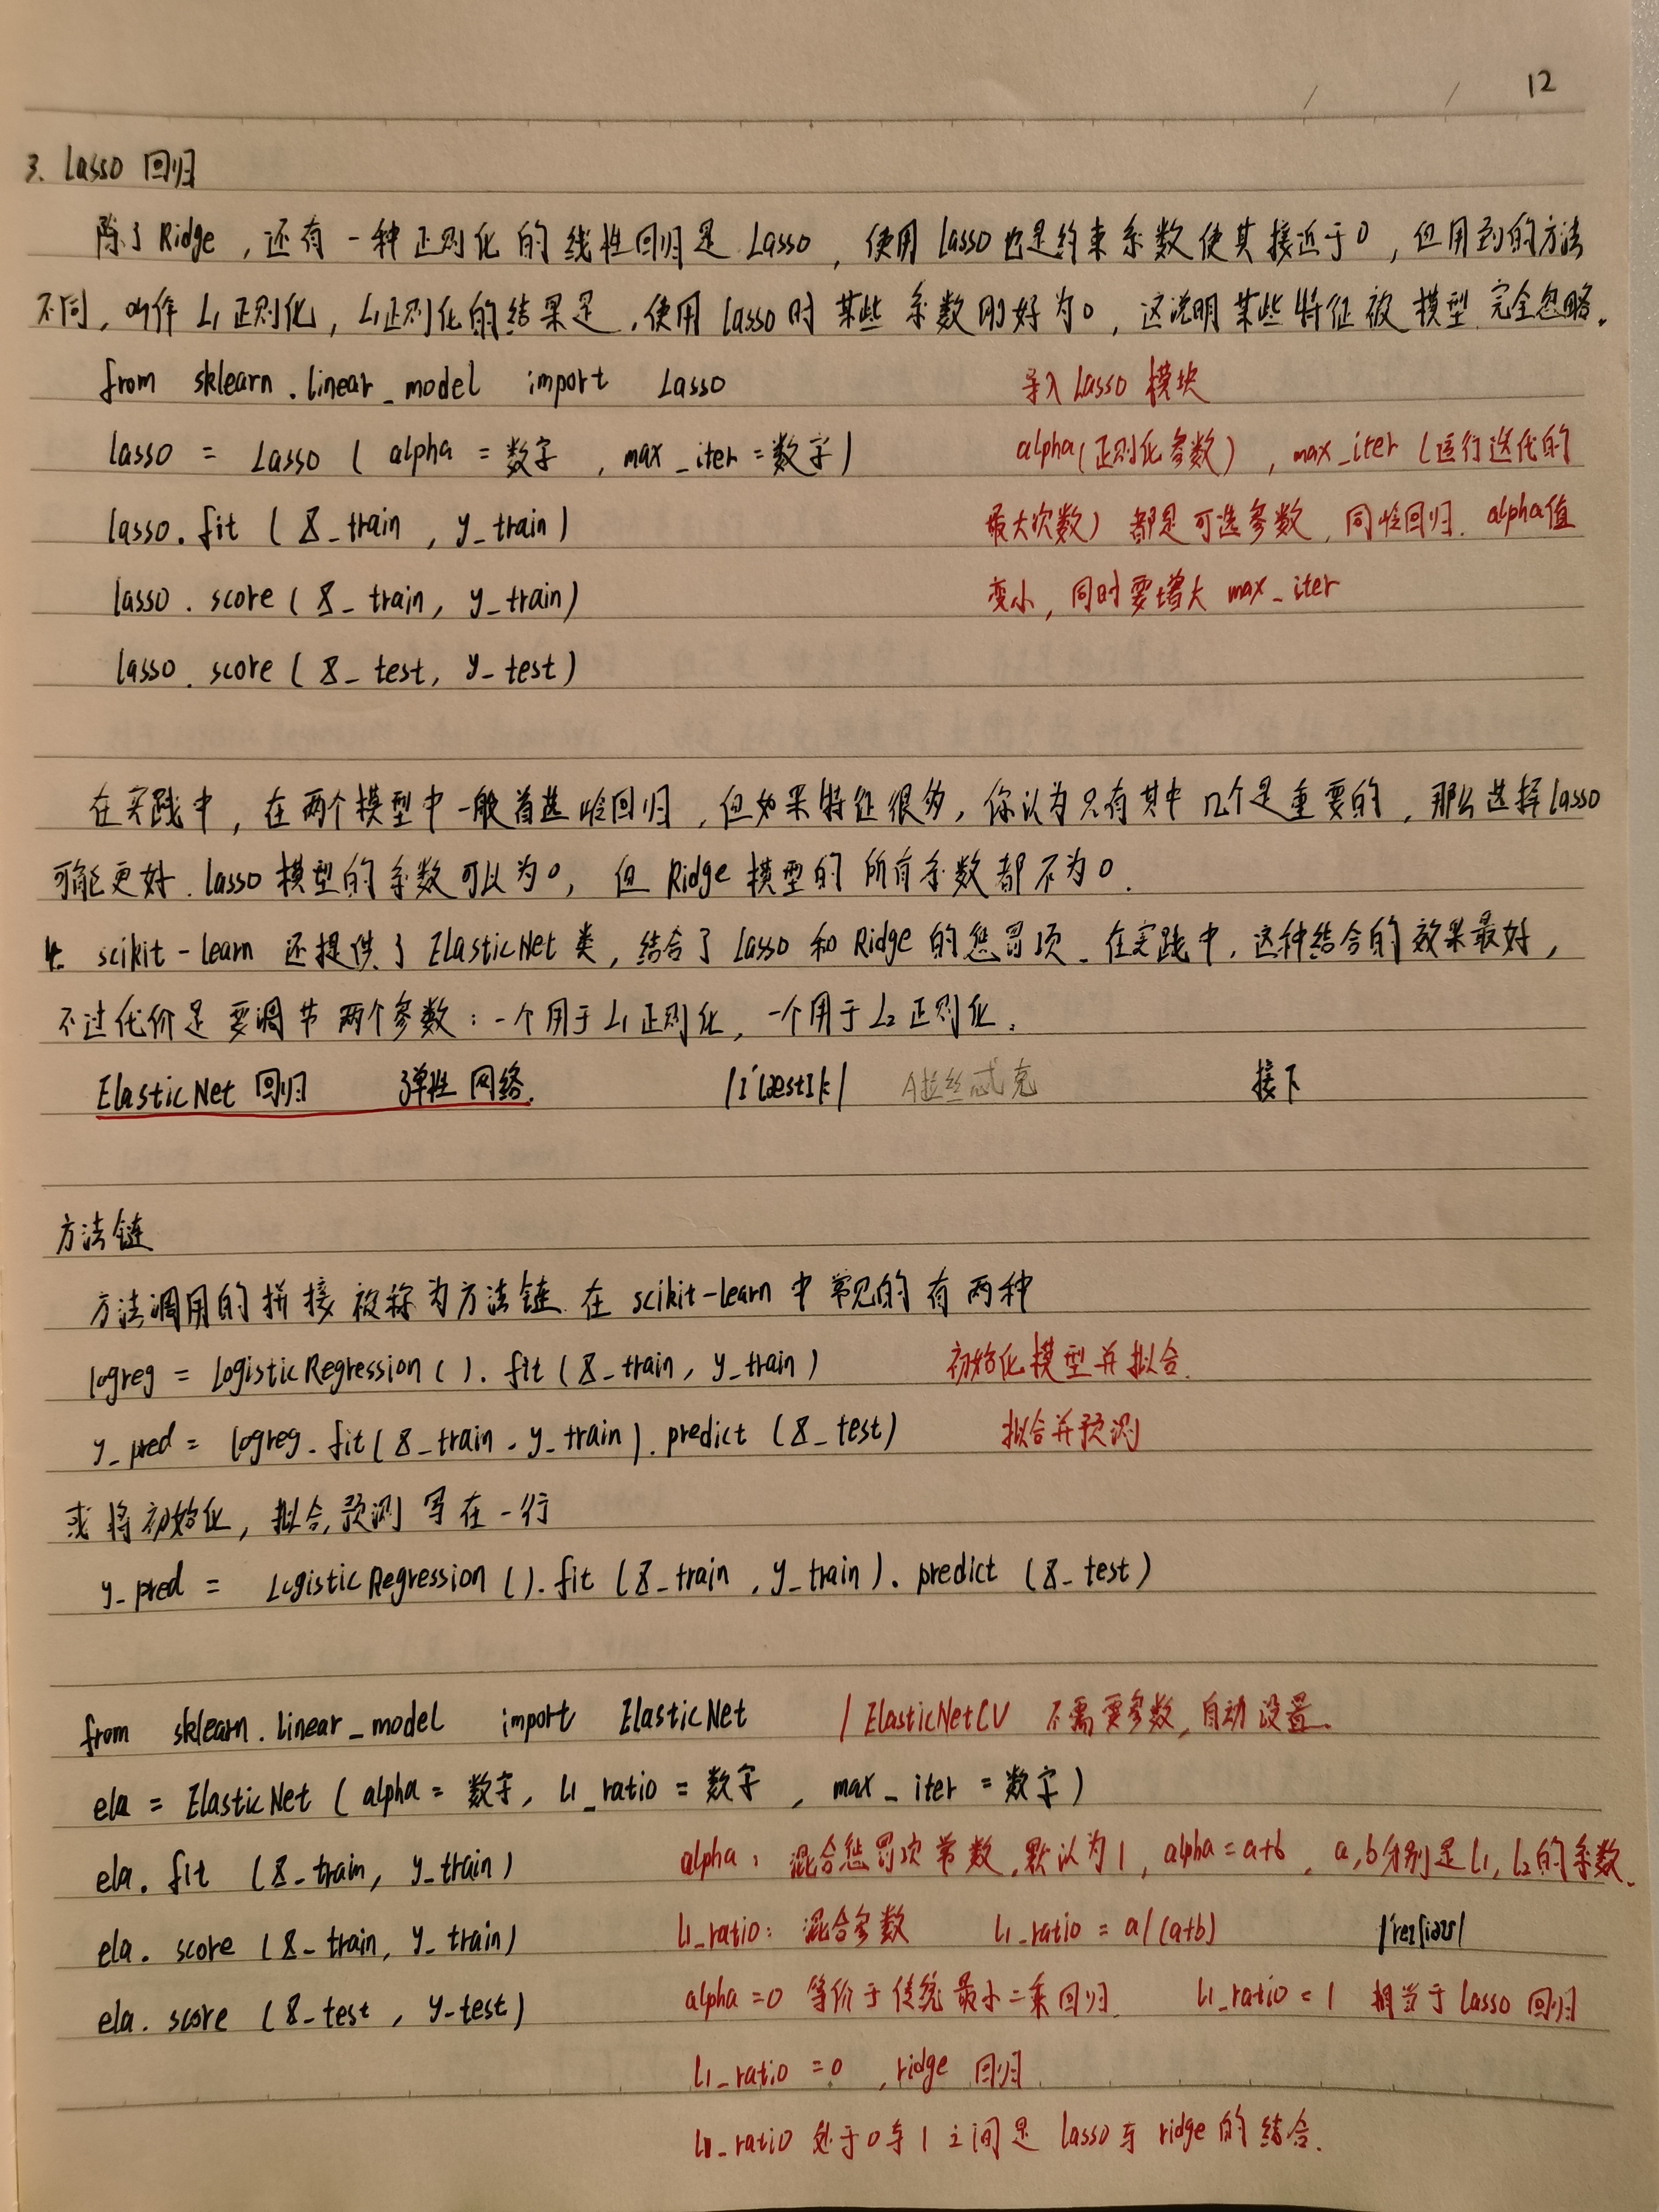 12
3. Lasso 回归
除了Ridge，还有一种正则化的线性回归是 Lasso，使用 lasso 也是约束系数使其接近于0，但用到的方法
不同，叫作 L1 正则化，L1正则化的结果是，使用 lasso 时 某些 系数刚好为0，这说明某些特征被模型完全忽略。
from sklearn.linear_model import Lasso 导入 Lasso 模块
lasso = Lasso ( alpha = 数字 , max_iter = 数字 ) alpha(正则化参数) , max_iter (运行迭代的
lasso. fit ( X_train , y_train ) 最大次数) 都是可选参数，同岭回归. alpha值
lasso. score ( X_train, y_train ) 变小，同时要增大 max_iter
lasso. score ( X_test, y_test )
在实践中，在两个模型中一般首选岭回归，但如果特征很多，你认为只有其中几个是重要的，那么选择lasso
可能更好. lasso 模型的系数可以为0，但 Ridge 模型的所有系数都不为0.
4. scikit-learn 还提供了 ElasticNet 类，结合了 Lasso 和 Ridge 的惩罚项. 在实践中，这种结合的效果最好，
不过代价是要调节两个参数：一个用于 L1 正则化，一个用于 L2 正则化。
ElasticNet 回归 弹性网络. /ɪˈlæstɪk/ 接下
方法链
方法调用的拼接被称为方法链. 在 scikit-learn 中常见的有两种
logreg = LogisticRegression ( ). fit ( X_train, y_train ) 初始化模型并拟合.
y_pred = logreg. fit ( X_train, y_train ). predict ( X_test ) 拟合并预测
或将初始化，拟合，预测写在一行
y_pred = LogisticRegression ( ). fit ( X_train , y_train ). predict ( X_test )
from sklearn.linear_model import ElasticNet / ElasticNetCV 不需要参数，自动设置.
ela = ElasticNet ( alpha = 数字, l1_ratio = 数字 , max_iter = 数字 )
ela. fit ( X_train, y_train ) alpha：混合惩罚项常数，默认为1，alpha = a+b , a,b分别是L1, L2的系数.
ela. score ( X_train, y_train ) l1_ratio：混合参数 l1_ratio = a/(a+b) /ˈreɪʃiəʊ/
ela. score ( X_test , y_test ) alpha=0 等价于传统最小二乘回归. l1_ratio = 1 相当于 lasso 回归
l1_ratio = 0 , ridge 回归
l1_ratio 处于0与1之间是 lasso 与 ridge 的结合.